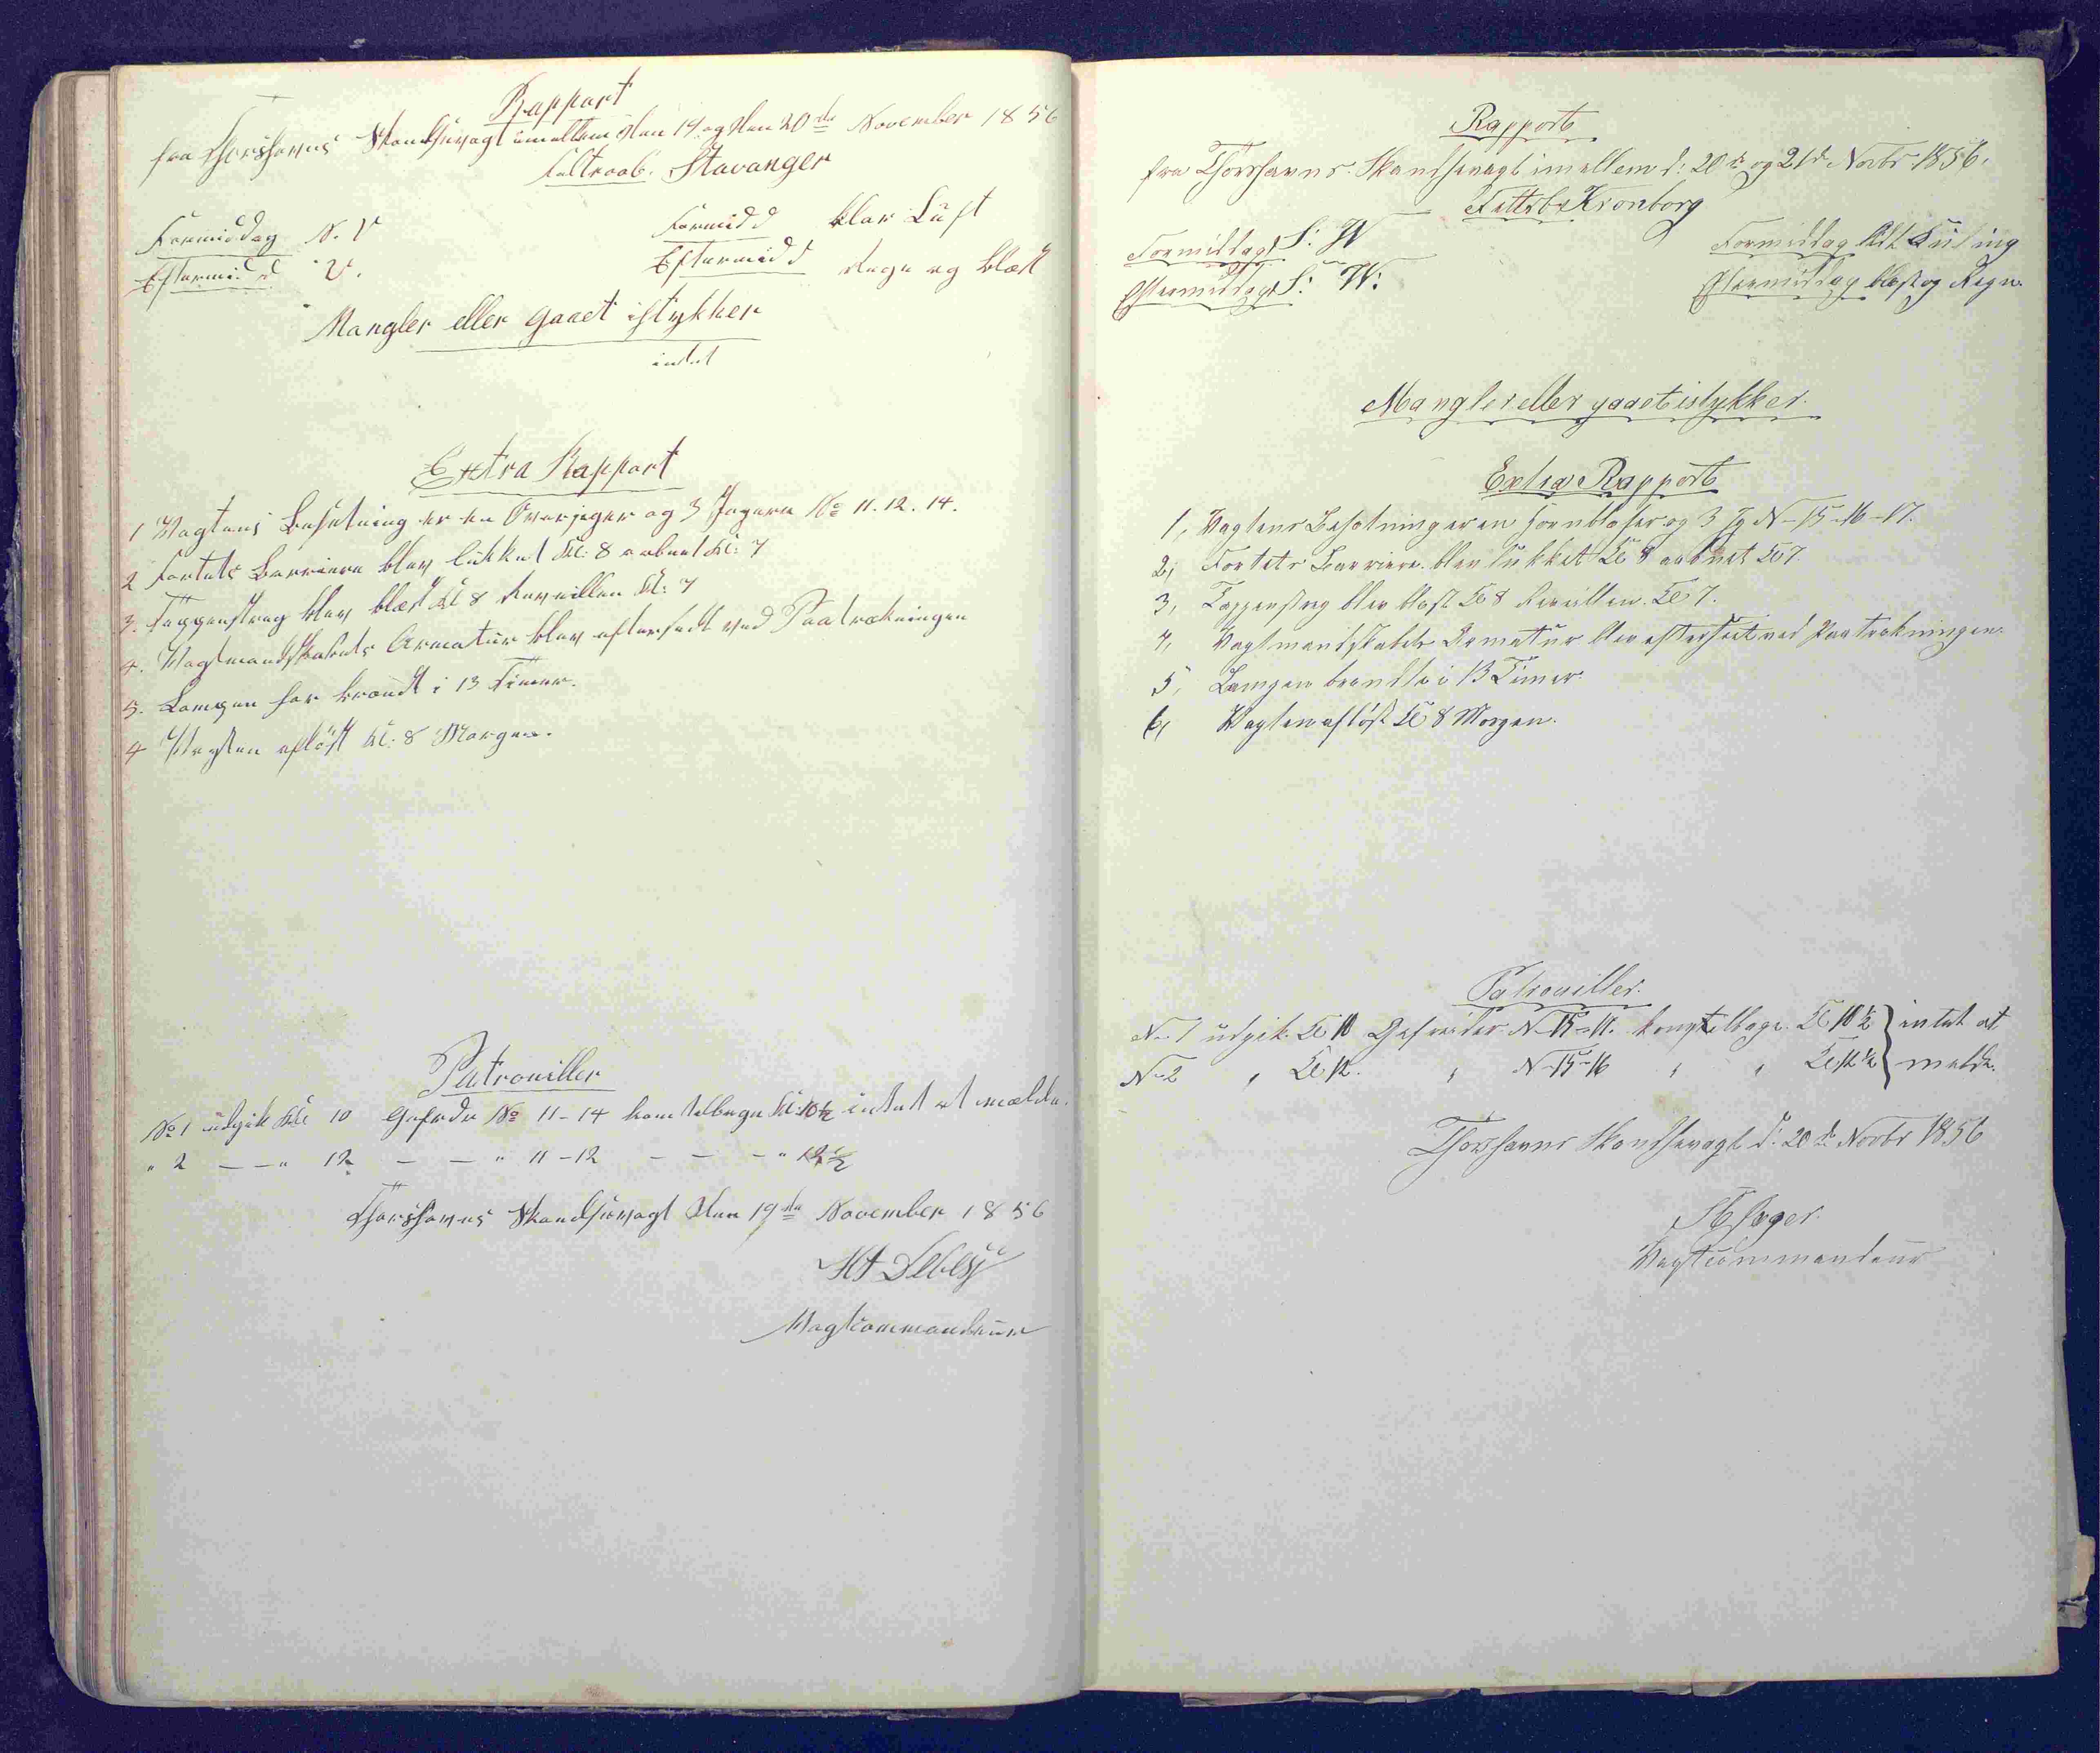 Rapport
fra Thorshavns Skandsevagt imellem den 19. og den 20de November 1856
Feltraab. Stavanger
Formiddag N. V Formidd klar Luft
Eftermidd V. Eftermidd Regn og blæst
Mangler eller gaaet istykker
intet
Extra Rapport
1 Vagtens Besetning er en Overjeger og 3 Jegere No 11. 12. 14.
2 Fortets Barriere blev lukket Kl: 8 aabnet Kl: 7
3. Tappenstreg blev blæst Kl 8 Reveillen Kl: 7
4. Vagtmandskabets Armatur blev efterseet ved Paatrækningen
5. Lampen har brændt i 13 Timer.
4 Vagten afløst Kl: 8 Morgen.
Patrouiller
No 1 udgik Kl 10 Gefrdr No 11-14 kom tilbage Kl: 10½ intet at mælde.
" 2 — — " 12 — — " 11-12 — — — " 12½
Thorshavns Skandsevagt den 19de November 1856
Debess
Vagtcommandeur
Rapport
fra Thorshavns Skandsevagt imellem d: 20de og 21de Novbr 1856.
Feltrb. Kronborg
Formiddag S: W Formiddag lidt Kuling
Eftermiddag S: W: Eftermiddag blæst og Regn.
Mangler eller gaaet istykker.
Extra Rapport
1, Vagtens Besætning er en Hornblæser og 3 Jg N-15-16-17.
2, Fortets Barriere blev lukket Kl 8 aabnet Kl 7.
3, Tappenstreg blev blæst Kl 8 Reveillen Kl 7.
4, Vagtmandskabets Armatur blev efterseet ved Paatrækningen.
5, Lampen brændte i 13 Timer.
6, Vagten afløst Kl 8 Morgen.
Patrouiller.
No 1 udgik Kl 10 Gefreider N-15-17. kom tilbage Kl 10½ } intet at
No 2 " Kl 12. " N-15-16 " " Kl 12½ } melde.
Thorshavns Skandsevagt d: 20de Novbr 1856
Vagtcommandeur